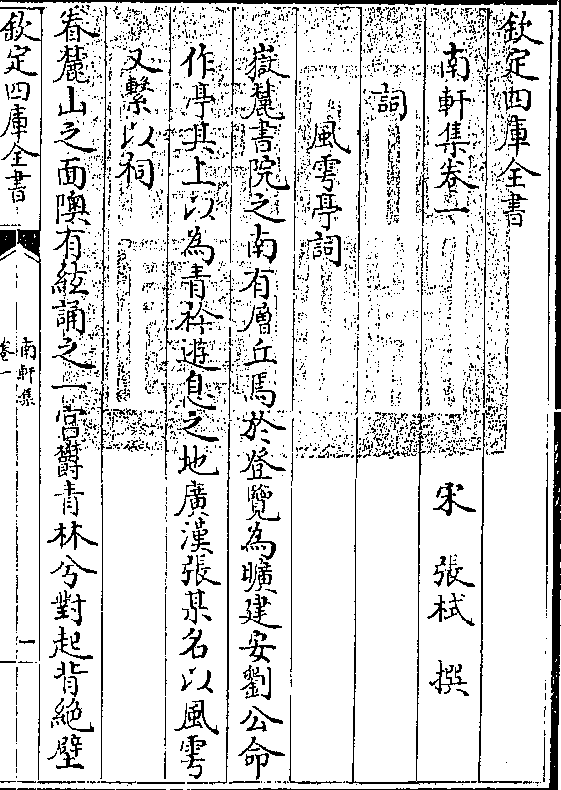 欽定四庫全書
南軒集卷一
宋 張栻 撰
詞
風雩亭詞
嶽麓書院之南有層丘焉於登覽為曠建安劉公命
作亭其上以為青衿遊息之地廣漢張某名以風雩
又繫以詞
眷麓山之面隩有絃誦之一宮鬱青林兮對起背絶壁
欽定四庫全書
南軒集
卷一
一